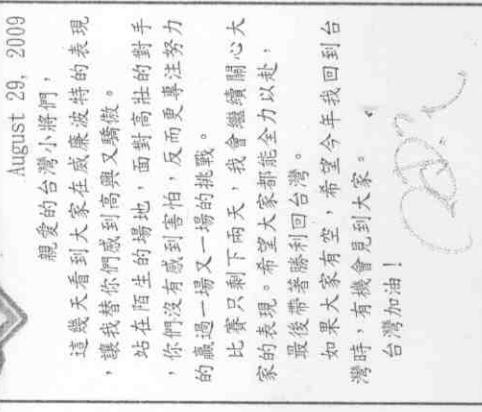 August 29, 2009
親愛的台灣小將們，
這幾天看到大家在威廉波特的表現
，讓我替你們感到高興又驕傲。
站在陌生的場地，面對高壯的對手
，你們沒有感到害怕，反而更專注努力
的贏過一場又一場的挑戰。
比賽只剩下兩天，我會繼續關心大
家的表現。希望大家都能全力以赴，
最後帶著勝利回台灣。
如果大家有空，希望今年我回到台
灣時，有機會見到大家。
台灣加油！